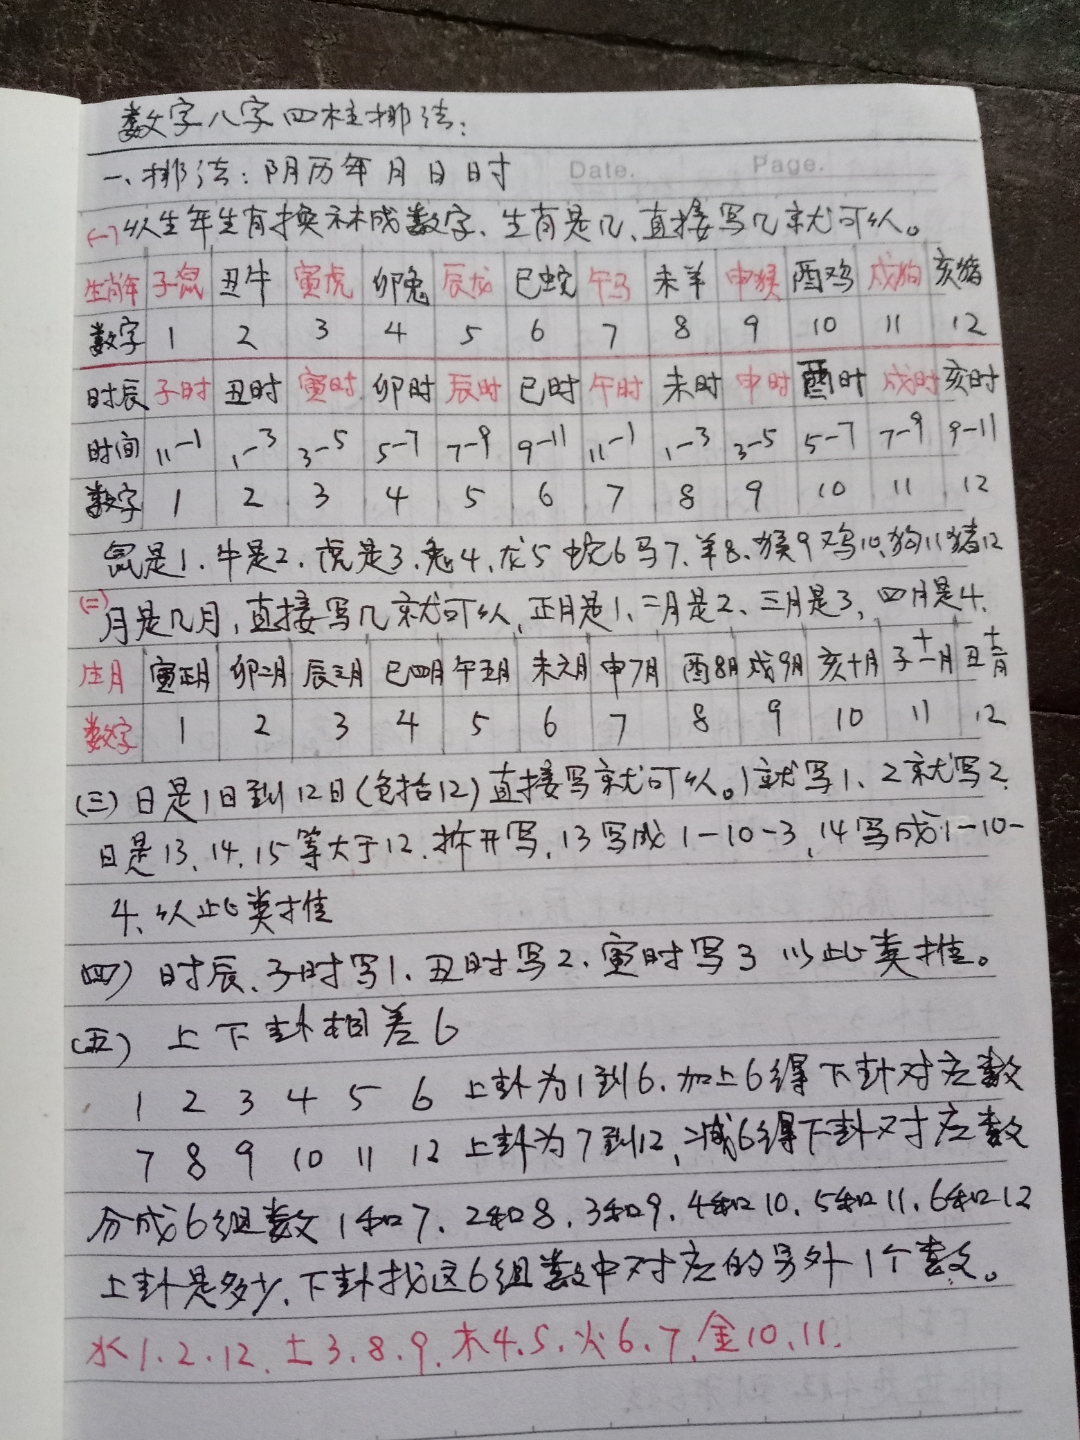 数字八字四柱排法:
一、排法:阴历年月日时
Date. Page.
(一)以生年生肖换木成数字、生肖是几、直接写几就可以。
生肖年 子鼠 丑牛 寅虎 卯兔 辰龙 巳蛇 午马 未羊 申猴 酉鸡 戌狗 亥猪
数字 1 2 3 4 5 6 7 8 9 10 11 12
时辰 子时 丑时 寅时 卯时 辰时 巳时 午时 未时 申时 酉时 戌时 亥时
时间 11-1 1-3 3-5 5-7 7-9 9-11 11-1 1-3 3-5 5-7 7-9 9-11
数字 1 2 3 4 5 6 7 8 9 10 11 12
鼠是1、牛是2、虎是3、兔4、龙5 蛇6马7、羊8、猴9鸡10、狗11猪12
(二)月是几月,直接写几就可以,正月是1、二月是2、三月是3、四月是4、
生月 寅正月 卯二月 辰三月 巳四月 午五月 未六月 申7月 酉8月 戌9月 亥十月 子十一月 丑十二月
数字 1 2 3 4 5 6 7 8 9 10 11 12
(三)日是1日到12日(包括12)直接写就可以。1就写1、2就写2、
日是13、14、15等大于12、拆开写,13写成1-10-3,14写成1-10-
4、以此类推
(四)时辰、子时写1、丑时写2、寅时写3 以此类推。
(五)上下卦相差6
1 2 3 4 5 6 上卦为1到6、加上6得下卦对应数
7 8 9 10 11 12 上卦为7到12,减6得下卦对应数
分成6组数 1和7、2和8、3和9、4和10、5和11、6和12
上卦是多少、下卦找这6组数中对应的另外1个数。
水1.2.12、土3.8.9、木4.5、火6.7、金10.11.